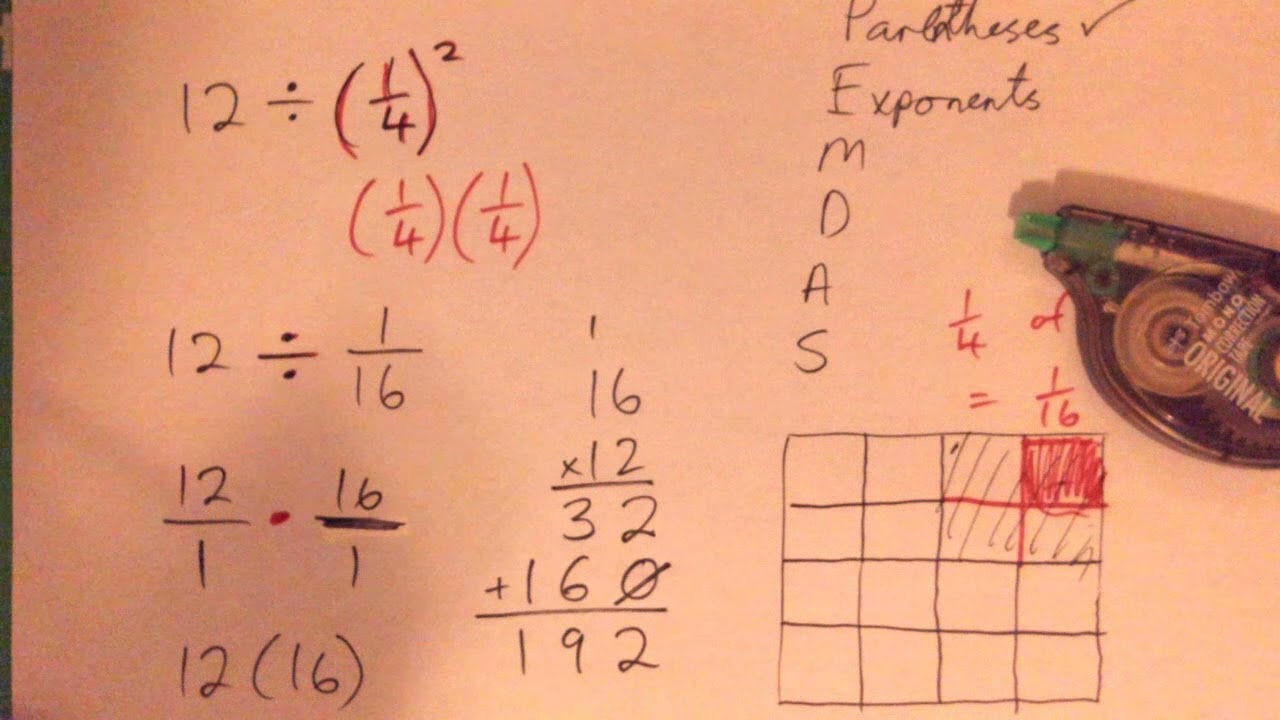 12 ÷ (1/4)²
(1/4)(1/4)
12 ÷ 1/16
12/1 · 16/1
12(16)
1
16
×12
32
+160
192
Parentheses ✓
Exponents
M
D
A
S
1/4 of
= 1/16
Tombow
MONO
CORRECTION
TAPE
ORIGINAL